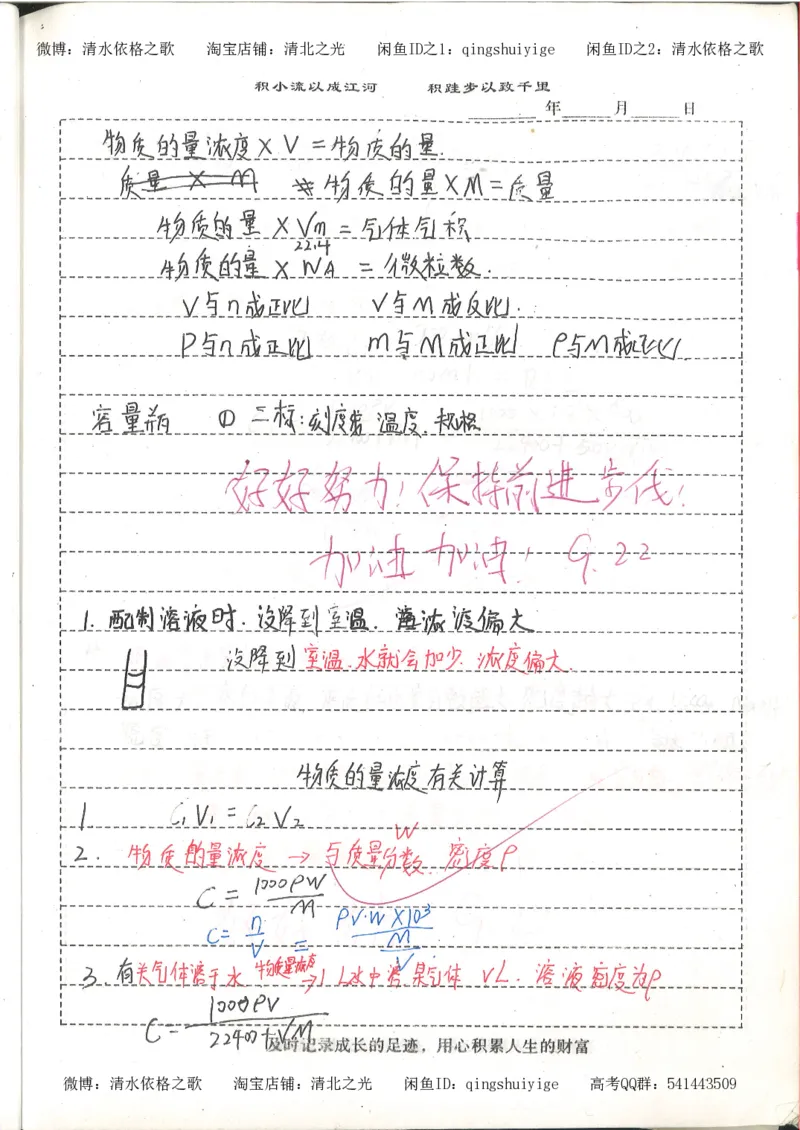 微博：清水依格之歌 淘宝店铺：清北之光 闲鱼ID之1：qingshuiyige 闲鱼ID之2：清水依格之歌
积小流以成江河 积跬步以致千里
年 月 日
物质的量浓度×V=物质的量.
质量 × M 物质的量×M=质量
物质的量×Vm=气体气积
22.4
物质的量×NA=微粒数.
V与n成正比 V与M成反比.
P与n成正比 m与M成正比 ρ与M成正比.
容量瓶 ① 三标:刻度线 温度.规格
好好努力!保持前进步伐!
加油 加油! 9.22
1. 配制溶液时.没降到室温. 浓度偏大
没降到室温.水就会加少.浓度偏大
物质的量浓度有关计算
1 C₁V₁=C₂V₂
2. 物质的量浓度→与质量分数W 密度ρ
C=1000ρW/M
C=n/V=ρV·W×10³/M/V
3.有关气体溶于水 物质量浓度→1L水中溶某气体 VL. 溶液密度为ρ
C=1000ρV/22400+VM
及时记录成长的足迹，用心积累人生的财富
微博：清水依格之歌 淘宝店铺：清北之光 闲鱼ID：qingshuiyige 高考QQ群：541443509